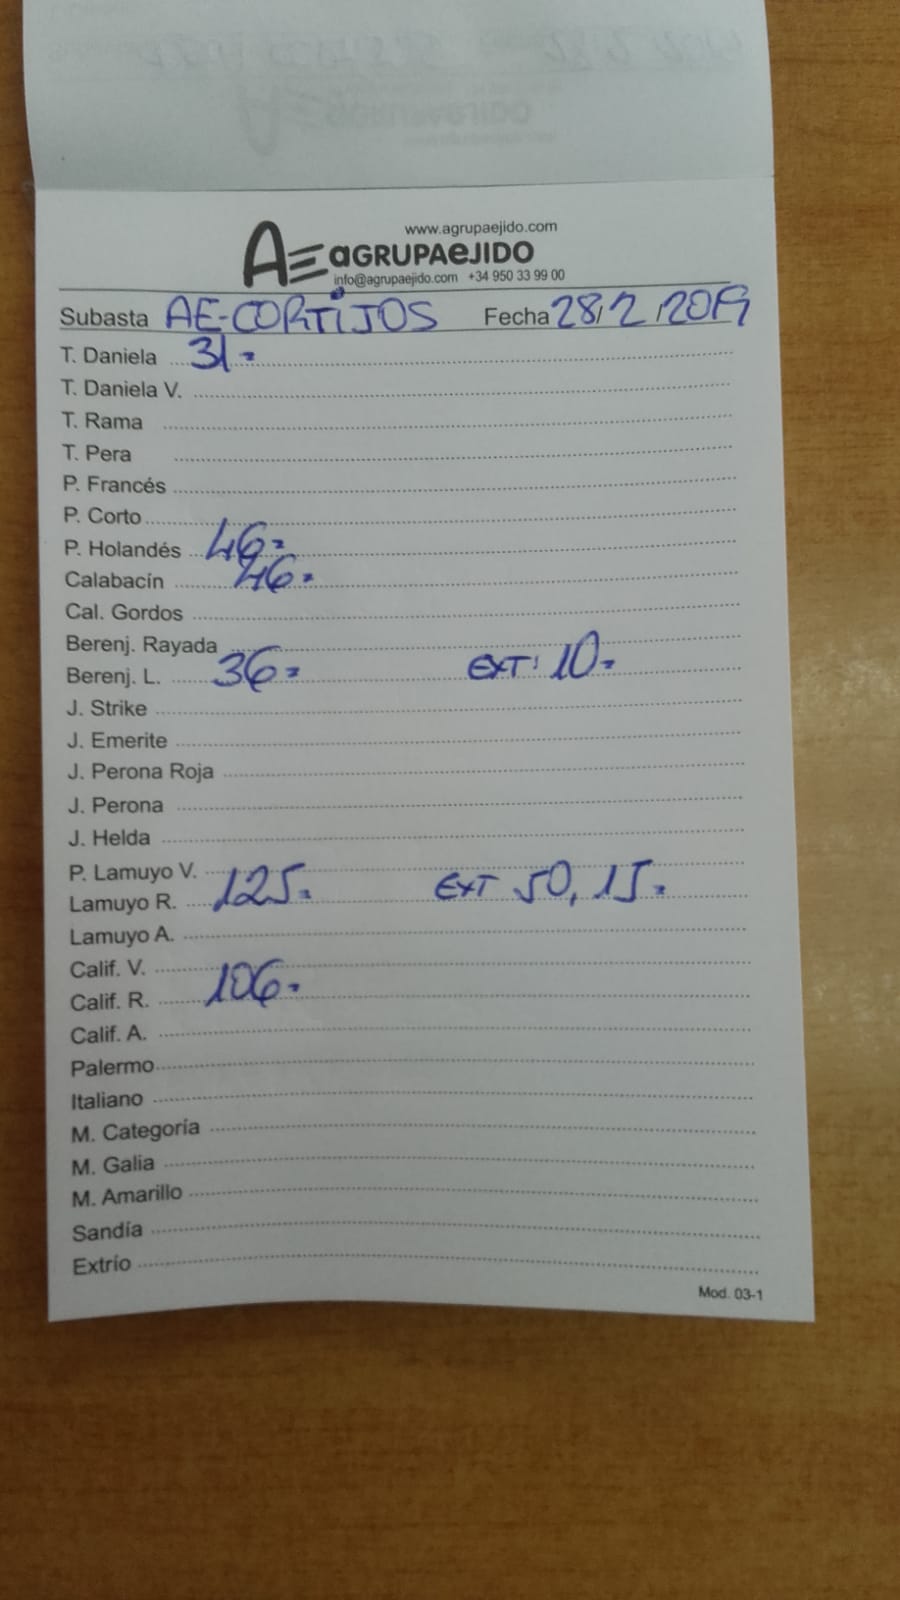 www.agrupaejido.com
AE aGRUPAeJIDO
info@agrupaejido.com +34 950 33 99 00
Subasta AE-CORTIJOS Fecha 28/2/2019
T. Daniela 31.-
T. Daniela V.
T. Rama
T. Pera
P. Francés
P. Corto
P. Holandés 46.-
Calabacín 46.-
Cal. Gordos
Berenj. Rayada
Berenj. L. 36.- EXT: 10.-
J. Strike
J. Emerite
J. Perona Roja
J. Perona
J. Helda
P. Lamuyo V.
Lamuyo R. 125.- EXT 50, 15.-
Lamuyo A.
Calif. V.
Calif. R. 106.-
Calif. A.
Palermo
Italiano
M. Categoría
M. Galia
M. Amarillo
Sandía
Extrío
Mod. 03-1